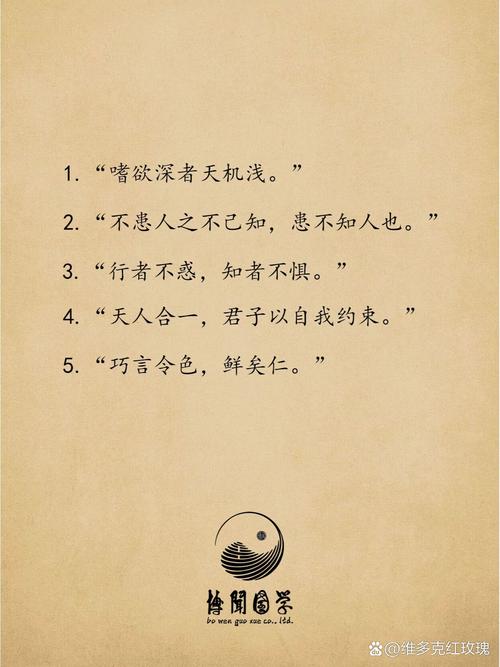 1. “嗜欲深者天机浅。”
2. “不患人之不己知，患不知人也。”
3. “行者不惑，知者不惧。”
4. “天人合一，君子以自我约束。”
5. “巧言令色，鲜矣仁。”
博聞國学
bo wen guo xue co., ltd.
@维多克红玫瑰